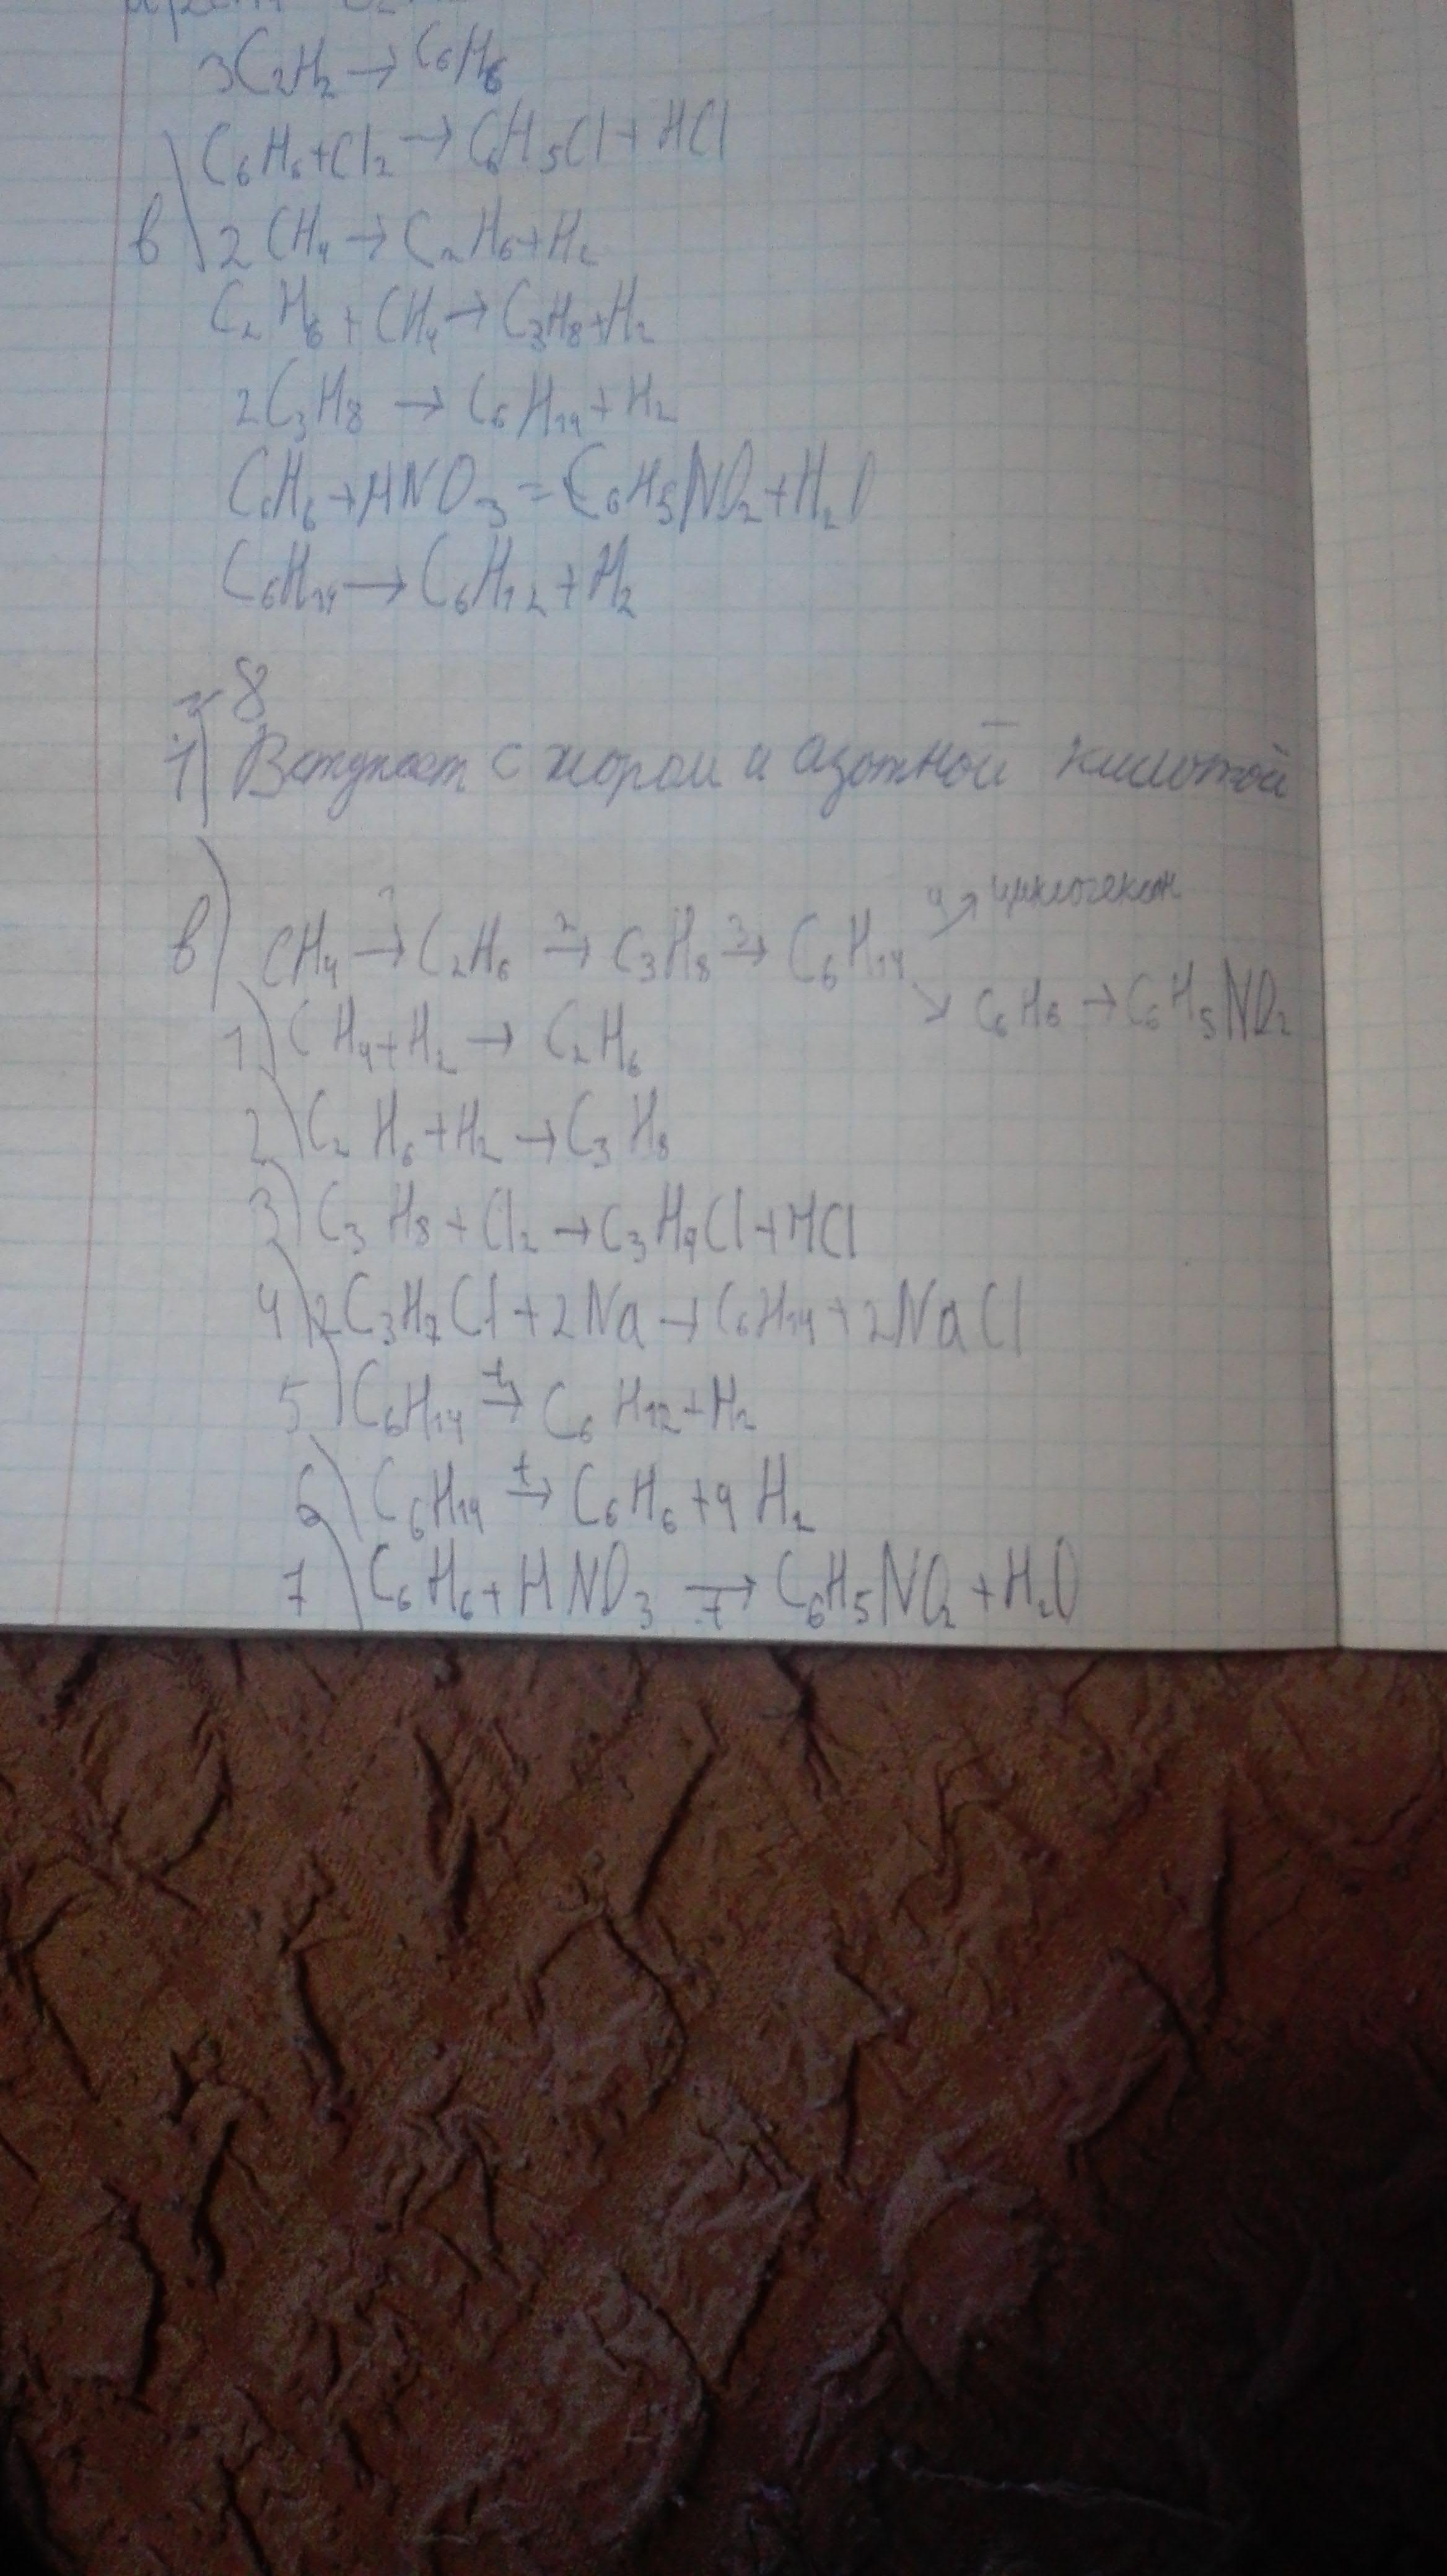 3C₂H₂ → C₆H₆
C₆H₆+Cl₂ → C₆H₅Cl + HCl
в) 2CH₄ → C₂H₆+H₂
C₂H₆ + CH₄ → C₃H₈+H₂
2C₃H₈ → C₆H₁₄ + H₂
C₆H₆ + HNO₃ = C₆H₅NO₂ + H₂O
C₆H₁₄ → C₆H₁₂ + H₂
8
1) Вступает с хлором и азотной кислотой
в) CH₄ → C₂H₆ →² C₃H₈ →³ C₆H₁₄ ⁴↗ циклогексан
↘ C₆H₆ → C₆H₅NO₂
1) CH₄+H₂ → C₂H₆
2) C₂H₆+H₂ → C₃H₈
3) C₃H₈ + Cl₂ → C₃H₇Cl + HCl
4) 2C₃H₇Cl + 2Na → C₆H₁₄ + 2NaCl
5) C₆H₁₄ →ᵗ C₆H₁₂+H₂
6) C₆H₁₄ →ᵗ C₆H₆ + 4H₂
7) C₆H₆ + HNO₃ →₇ C₆H₅NO₂ + H₂O